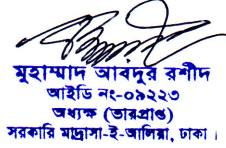 মুহাম্মাদ আবদুর রশীদ
আইডি নং-০৯২২৩
অধ্যক্ষ (ভারপ্রাপ্ত)
সরকারি মাদ্রাসা-ই-আলিয়া, ঢাকা।